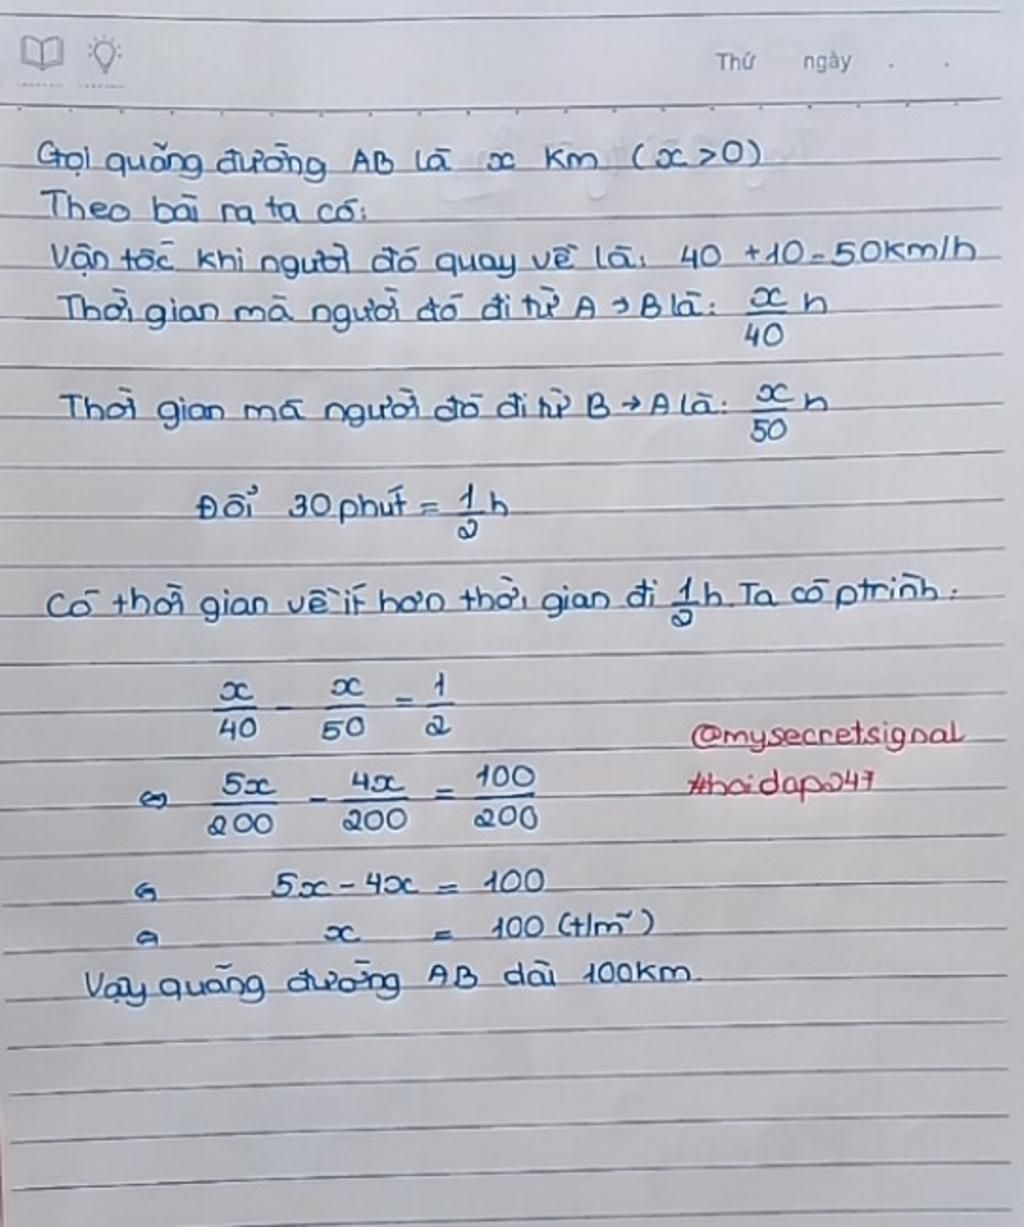 Thứ ngày . .
Gọi quãng đường AB là x km (x>0)
Theo bài ra ta có:
Vận tốc khi người đó quay về là: 40 +10=50km/h
Thời gian mà người đó đi từ A→B là: x/40 h
Thời gian mà người đó đi từ B→A là: x/50 h
Đổi 30 phút = 1/2 h
Có thời gian về ít hơn thời gian đi 1/2 h. Ta có ptrình:
x/40 - x/50 = 1/2
⇔ 5x/200 - 4x/200 = 100/200
@mysecretsignal
#hoidap247
⇔ 5x - 4x = 100
⇔ x = 100 (t/m)
Vậy quãng đường AB dài 100km.